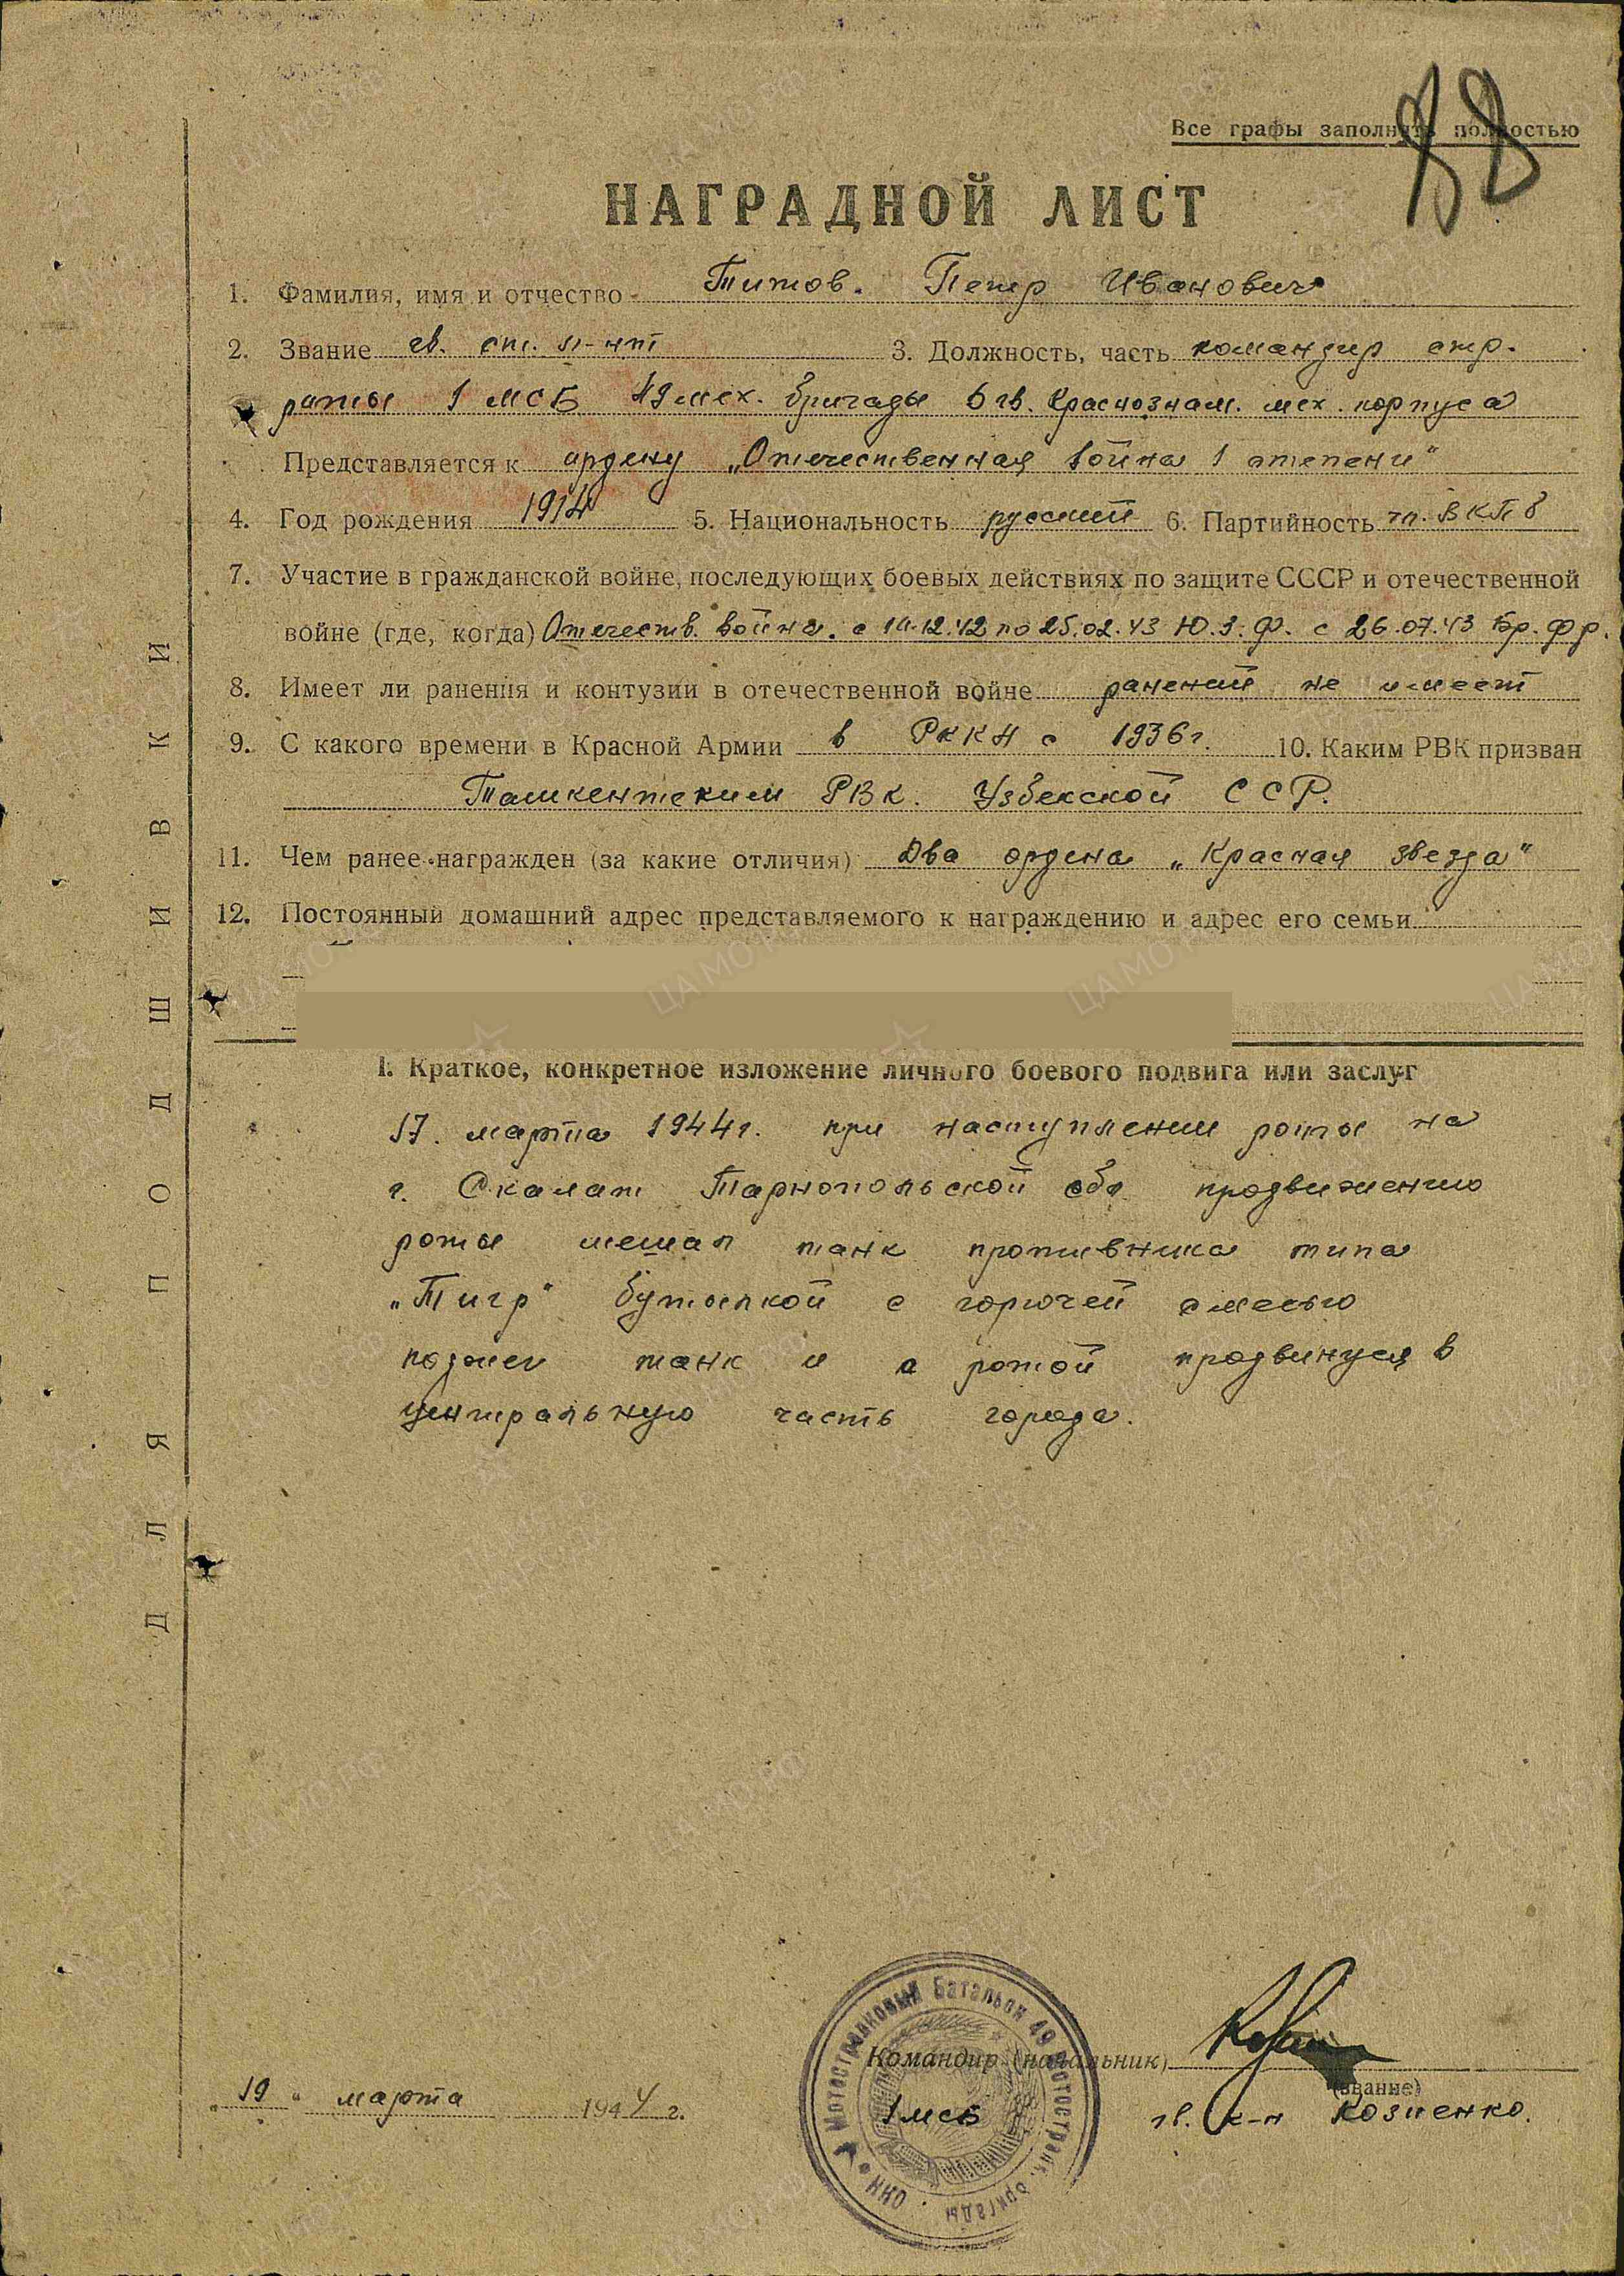 88
Все графы заполнять полностью
НАГРАДНОЙ ЛИСТ
1. Фамилия, имя и отчество Титов. Петр Иванович
2. Звание гв. ст. л-нт 3. Должность, часть командир стр.
роты 1 МСБ 49 мех. бригады 6 гв. Краснознам. мех. корпуса
Представляется к ордену „Отечественная война 1 степени"
4. Год рождения 1914 5. Национальность русский 6. Партийность чл. ВКПб
7. Участие в гражданской войне, последующих боевых действиях по защите СССР и отечественной
войне (где, когда) Отечеств. война. с 14.12.42 по 25.02.43 Ю.З.Ф. с 26.07.43 Бр. Фр.
8. Имеет ли ранения и контузии в отечественной войне ранений не имеет
9. С какого времени в Красной Армии в РККА с 1936 г. 10. Каким РВК призван
Ташкентским РВК. Узбекской ССР.
11. Чем ранее награжден (за какие отличия) Два ордена „Красная звезда"
12. Постоянный домашний адрес представляемого к награждению и адрес его семьи
I. Краткое, конкретное изложение личного боевого подвига или заслуг
17. марта 1944 г. при наступлении роты на
г. Скалат Тарнопольской обл. продвижению
роты мешал танк противника типа
„Тигр" бутылкой с горючей смесью
поджег танк и с ротой продвинулся в
центральную часть города.
Командир (начальник)
(звание)
„19" марта 1944 г.
1 МСБ
гв. к-н Козиенко.
Мотострелковый Батальон 49 Мотострелк. бригады
НКО
ДЛЯ ПОДШИВКИ
ЦА МО РФ